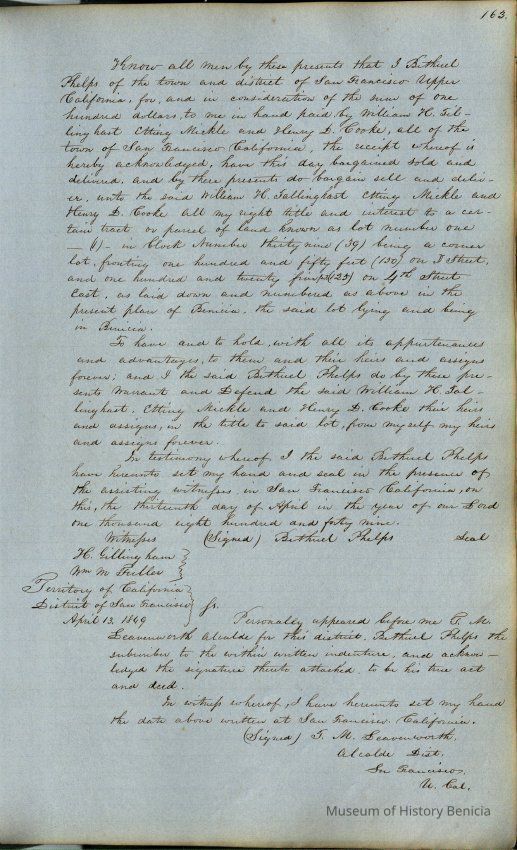 163.
Know all men by these presents that I Bethuel
Phelps of the town and district of San Francisco Upper
California, for, and in consideration of the sum of one
hundred dollars, to me in hand paid by William H. Til-
linghast Etting Mickle and Henry D. Cooke, all of the
town of San Francisco California, the receipt whereof is
hereby acknowledged, have this day bargained sold and
delivered, and by these presents do bargain sell and deliv-
er, unto the said William H. Tallinghast Etting Mickle and
Henry D. Cooke all my right title and interest to a cer-
tain tract or parcel of land known as lot number one
— (1) — in Block Number thirty nine (39) being a corner
lot, fronting one hundred and fifty feet (150) on I Street,
and one hundred and twenty five (125) on 4th Street
East, as laid down and numbered as above in the
present plan of Benicia. the said lot lying and being
in Benicia.
To have and to hold, with all its appurtenances
and advantages, to them and their heirs and assigns
forever; and I the said Bethuel Phelps do by these pre-
sents Warrant and Defend the said William H. Tal-
linghast, Etting Mickle and Henry D. Cooke their heirs
and assigns, in the title to said lot, from myself my heirs
and assigns forever.
In testimony whereof I the said Bethuel Phelps
have hereunto set my hand and seal in the presence of
the assisting witnesses, in San Francisco California, on
this, the thirteenth day of April in the year of our Lord
one thousand eight hundred and forty nine.
Witnesses (Signed) Bethuel Phelps Seal
H. Gillingham
Wm M Fuller
Territory of California
District of San Francisco Ss.
April 13. 1849 Personally appeared before me T. M.
Leavenworth Alcalde for this district, Bethuel Phelps the
subscriber to the within written indenture, and acknow-
ledged the signature thereto attached to be his true act
and deed.
In witness whereof, I have hereunto set my hand
the date above written at San Francisco. California.
(Signed) T. M. Leavenworth.
Alcalde Dist.
San Francisco,
U. Cal.
Museum of History Benicia